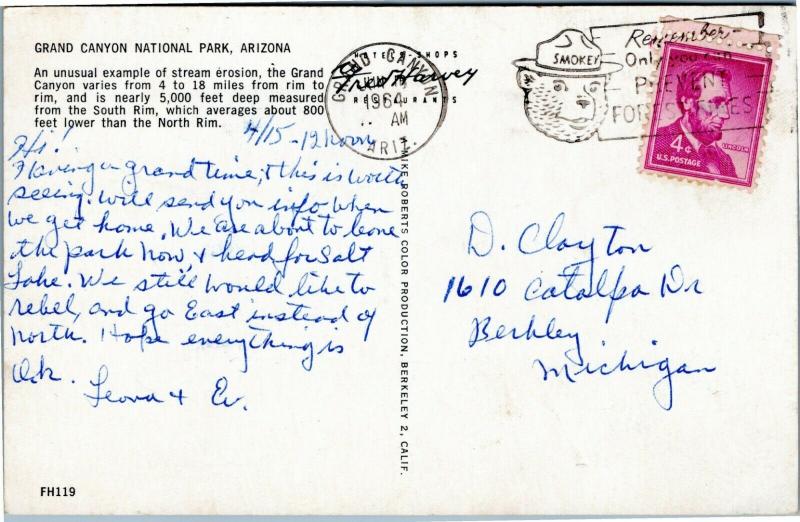 GRAND CANYON NATIONAL PARK, ARIZONA
An unusual example of stream erosion, the Grand
Canyon varies from 4 to 18 miles from rim to
rim, and is nearly 5,000 feet deep measured
from the South Rim, which averages about 800
feet lower than the North Rim.
HOTELS • SHOPS
Fred Harvey
RESTAURANTS
GRAND CANYON
1964
AM
ARIZ.
SMOKEY
Remember-
Only you can
PREVENT
FOREST FIRES
4¢
LINCOLN
U.S. POSTAGE
4/15-12 noon
Hi!
Having a grand time, & this is worth
seeing. Will send you info when
we get home. We are about to leave
the park now, & head for Salt
Lake. We still would like to
rebel, and go East instead of
North. Hope everything is
O.k.
Leona & Ev.
D. Clayton
1610 Catalpa Dr
Berkley
Michigan
MIKE ROBERTS COLOR PRODUCTION, BERKELEY 2, CALIF.
FH119